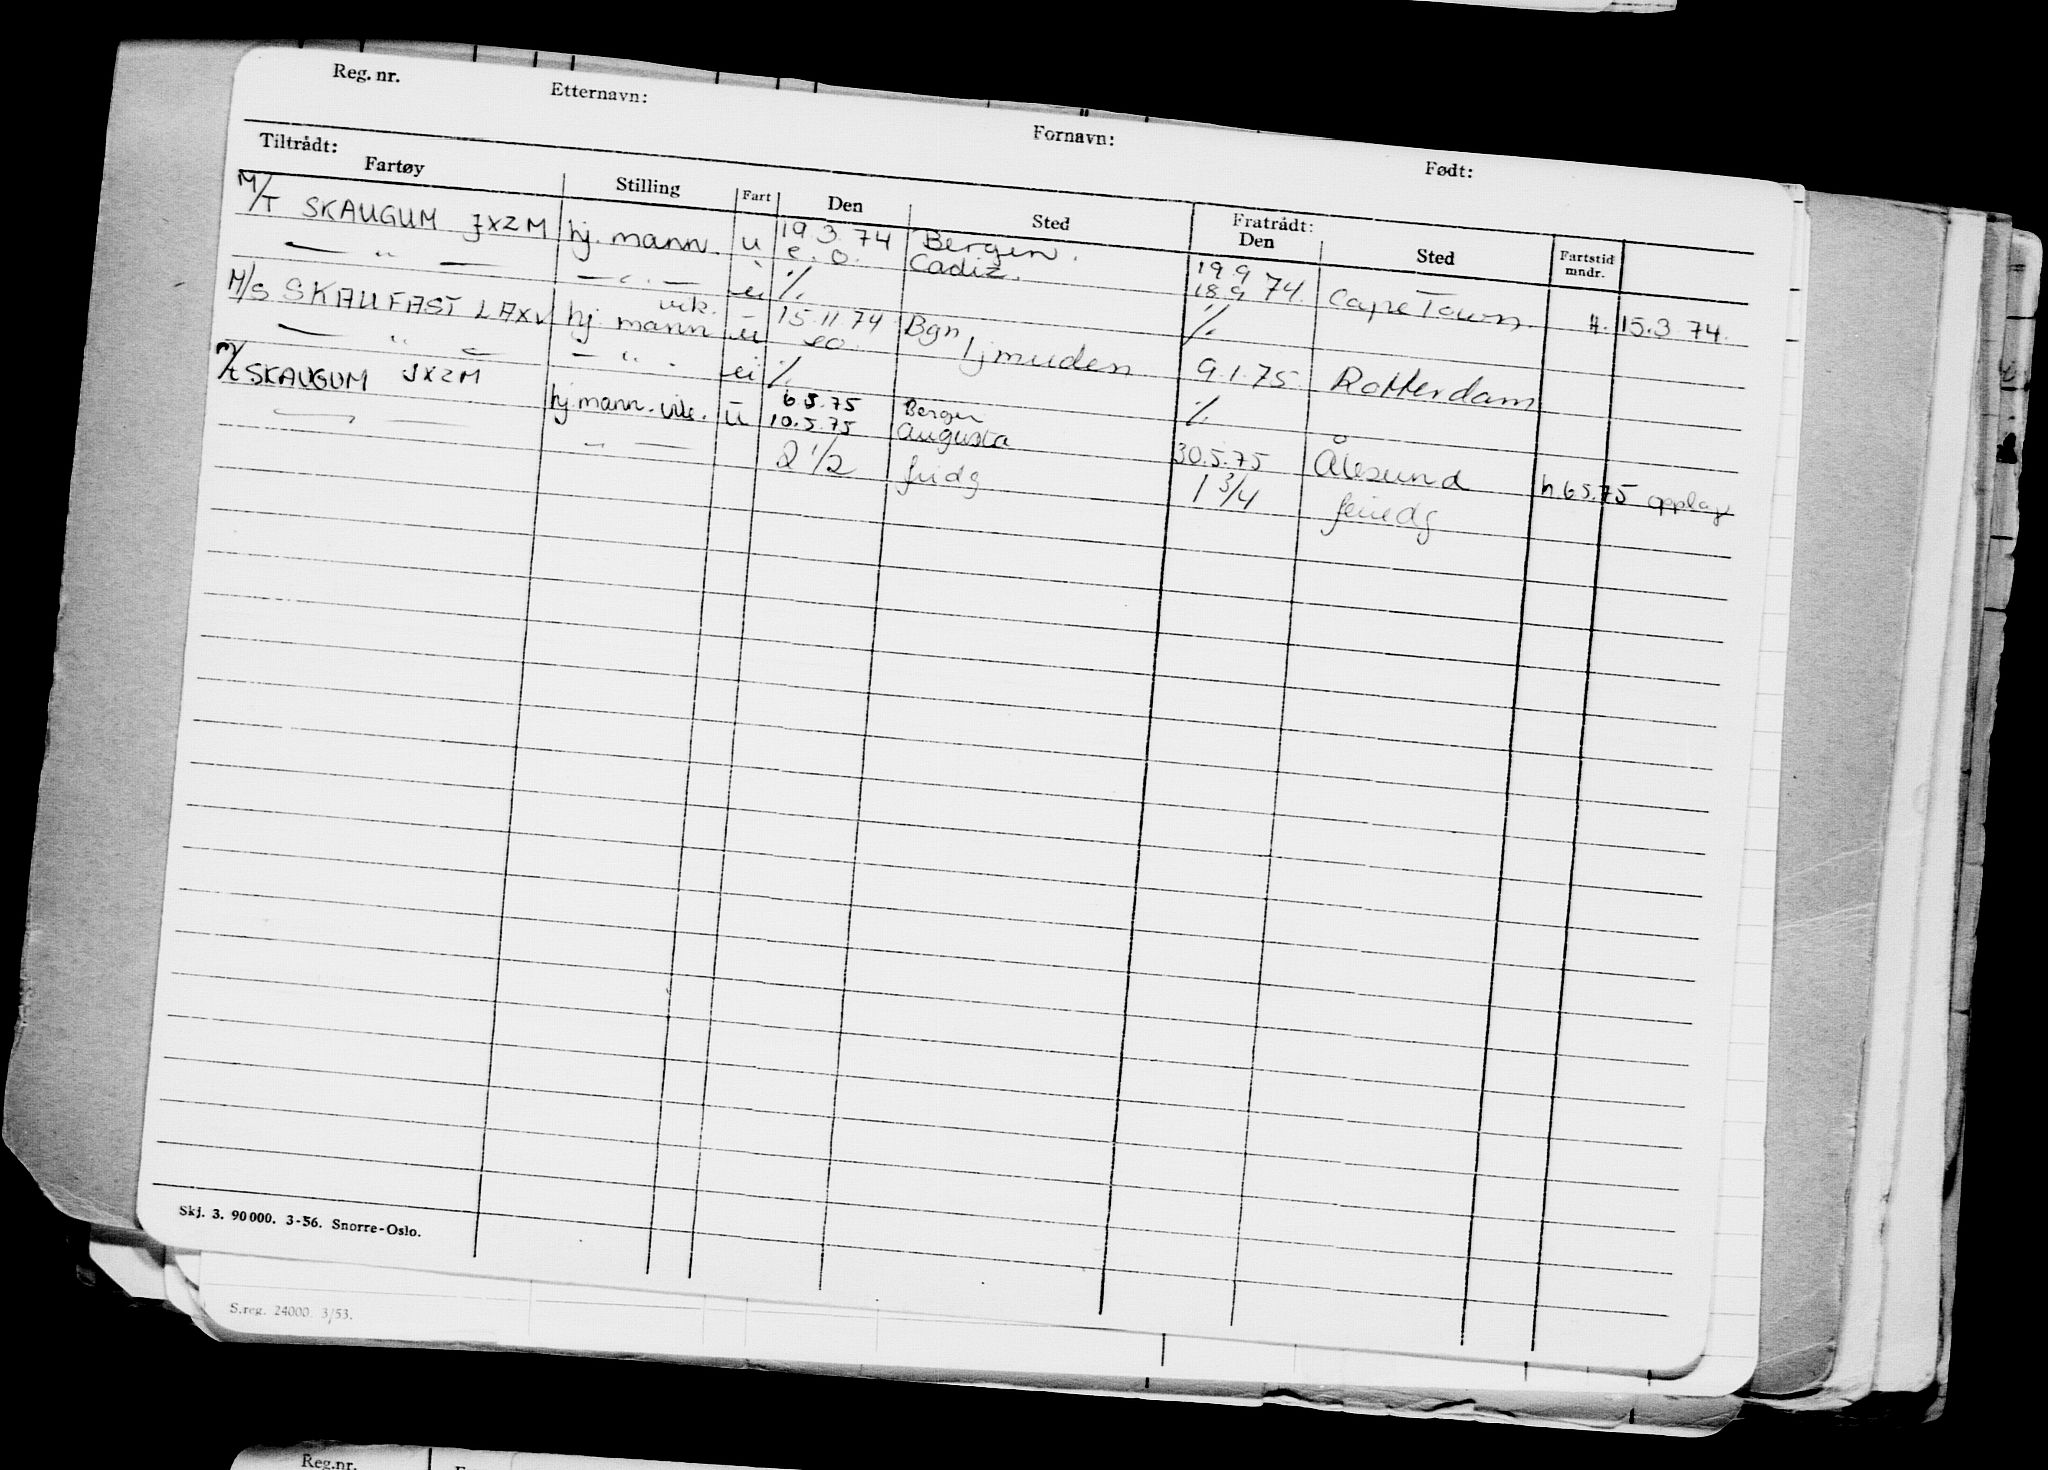 Reg. nr. Etternavn: Fornavn: Født:
Tiltrådt: Fratrådt:
Fartøy Stilling Fart Den Sted Den Sted Fartstid mndr.
M/T SKAUGUM JXZM hj. mann. u 19 3. 74 Bergen. 19 9
e. o. Cadiz. 18.9 74. Cape Town. H. 15.3 74.
— " — — " — ei % %
M/S SKAUFAST LAXV hj. mann vik. u 15 11 74 Bgn
eo. Ijmuden 9.1.75 Rotterdam
— " — — " . ei % %
M/t SKAUGUM JXZM hj. mann. vik. u 6 5.75 Bergen
10.5.75 Augusta 30.5.75 Ålesund h. 6.5.75 opplag
— " — — " —
2 1/2 1 3/4
Skj. 3. 90 000. 3-56. Snorre-Oslo.
S.reg. 24000. 3/53.
Reg.nr.